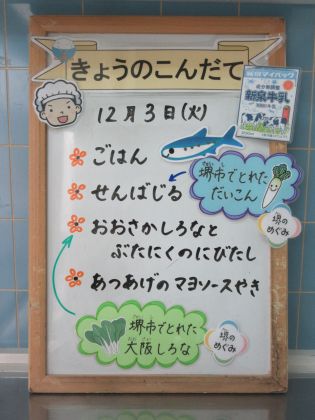 きょうのこんだて
12月3日(火)
ごはん
せんばじる
おおさかしろなと
ぶたにくのにびたし
あつあげのマヨソースやき
堺市でとれた
だいこん
堺の
めぐみ
堺市でとれた
大阪しろな
堺の
めぐみ
泉牛乳